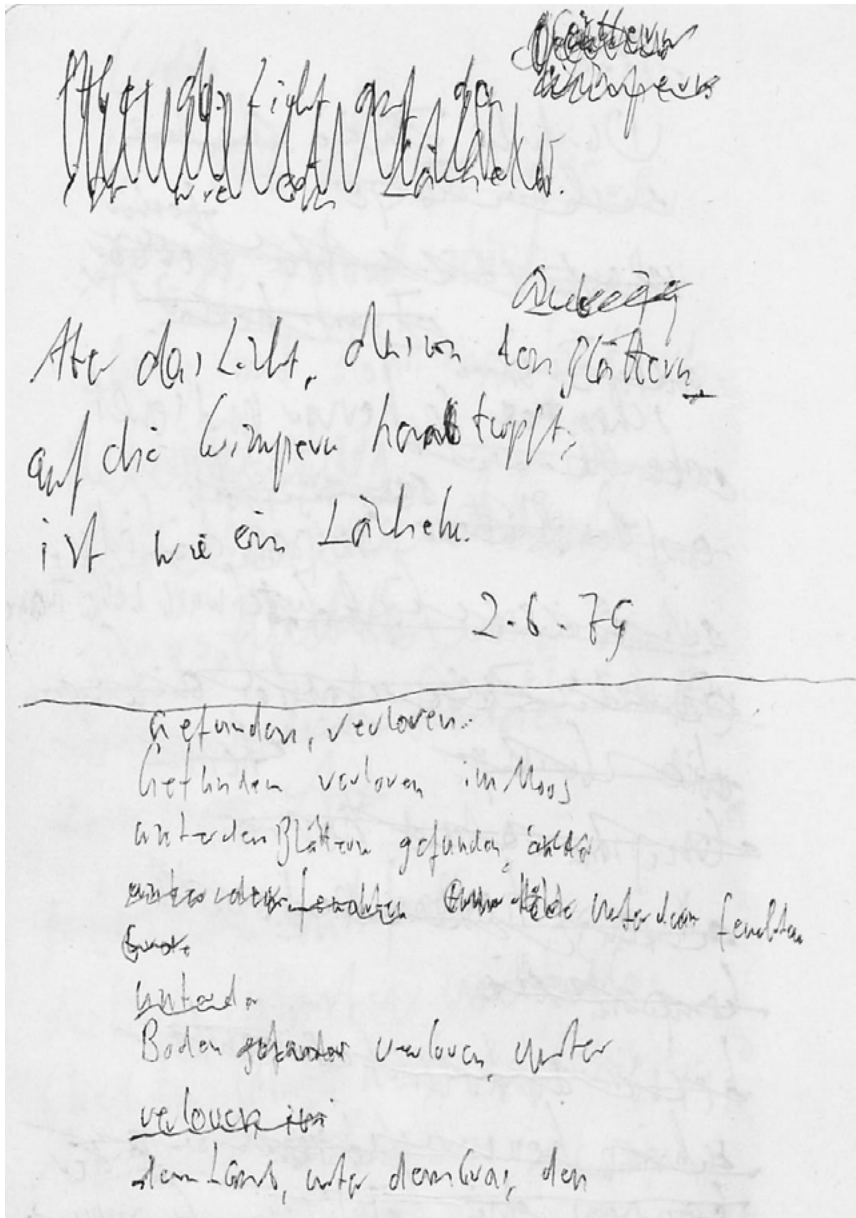 Aber das Licht auf den
ist wie ein Lächeln.
Aber das Licht, das von den Blättern
auf die Wimpern herabtropft,
ist wie ein Lächeln.
2.6.79
Gefunden, verloren.
Gefunden verloren im Moos
unter den Blättern gefunden,
unter dem feuchten
unter dem feuchten
unter
Boden gefunden verloren, unter
verloren im
dem Laub, unter dem Gras, den